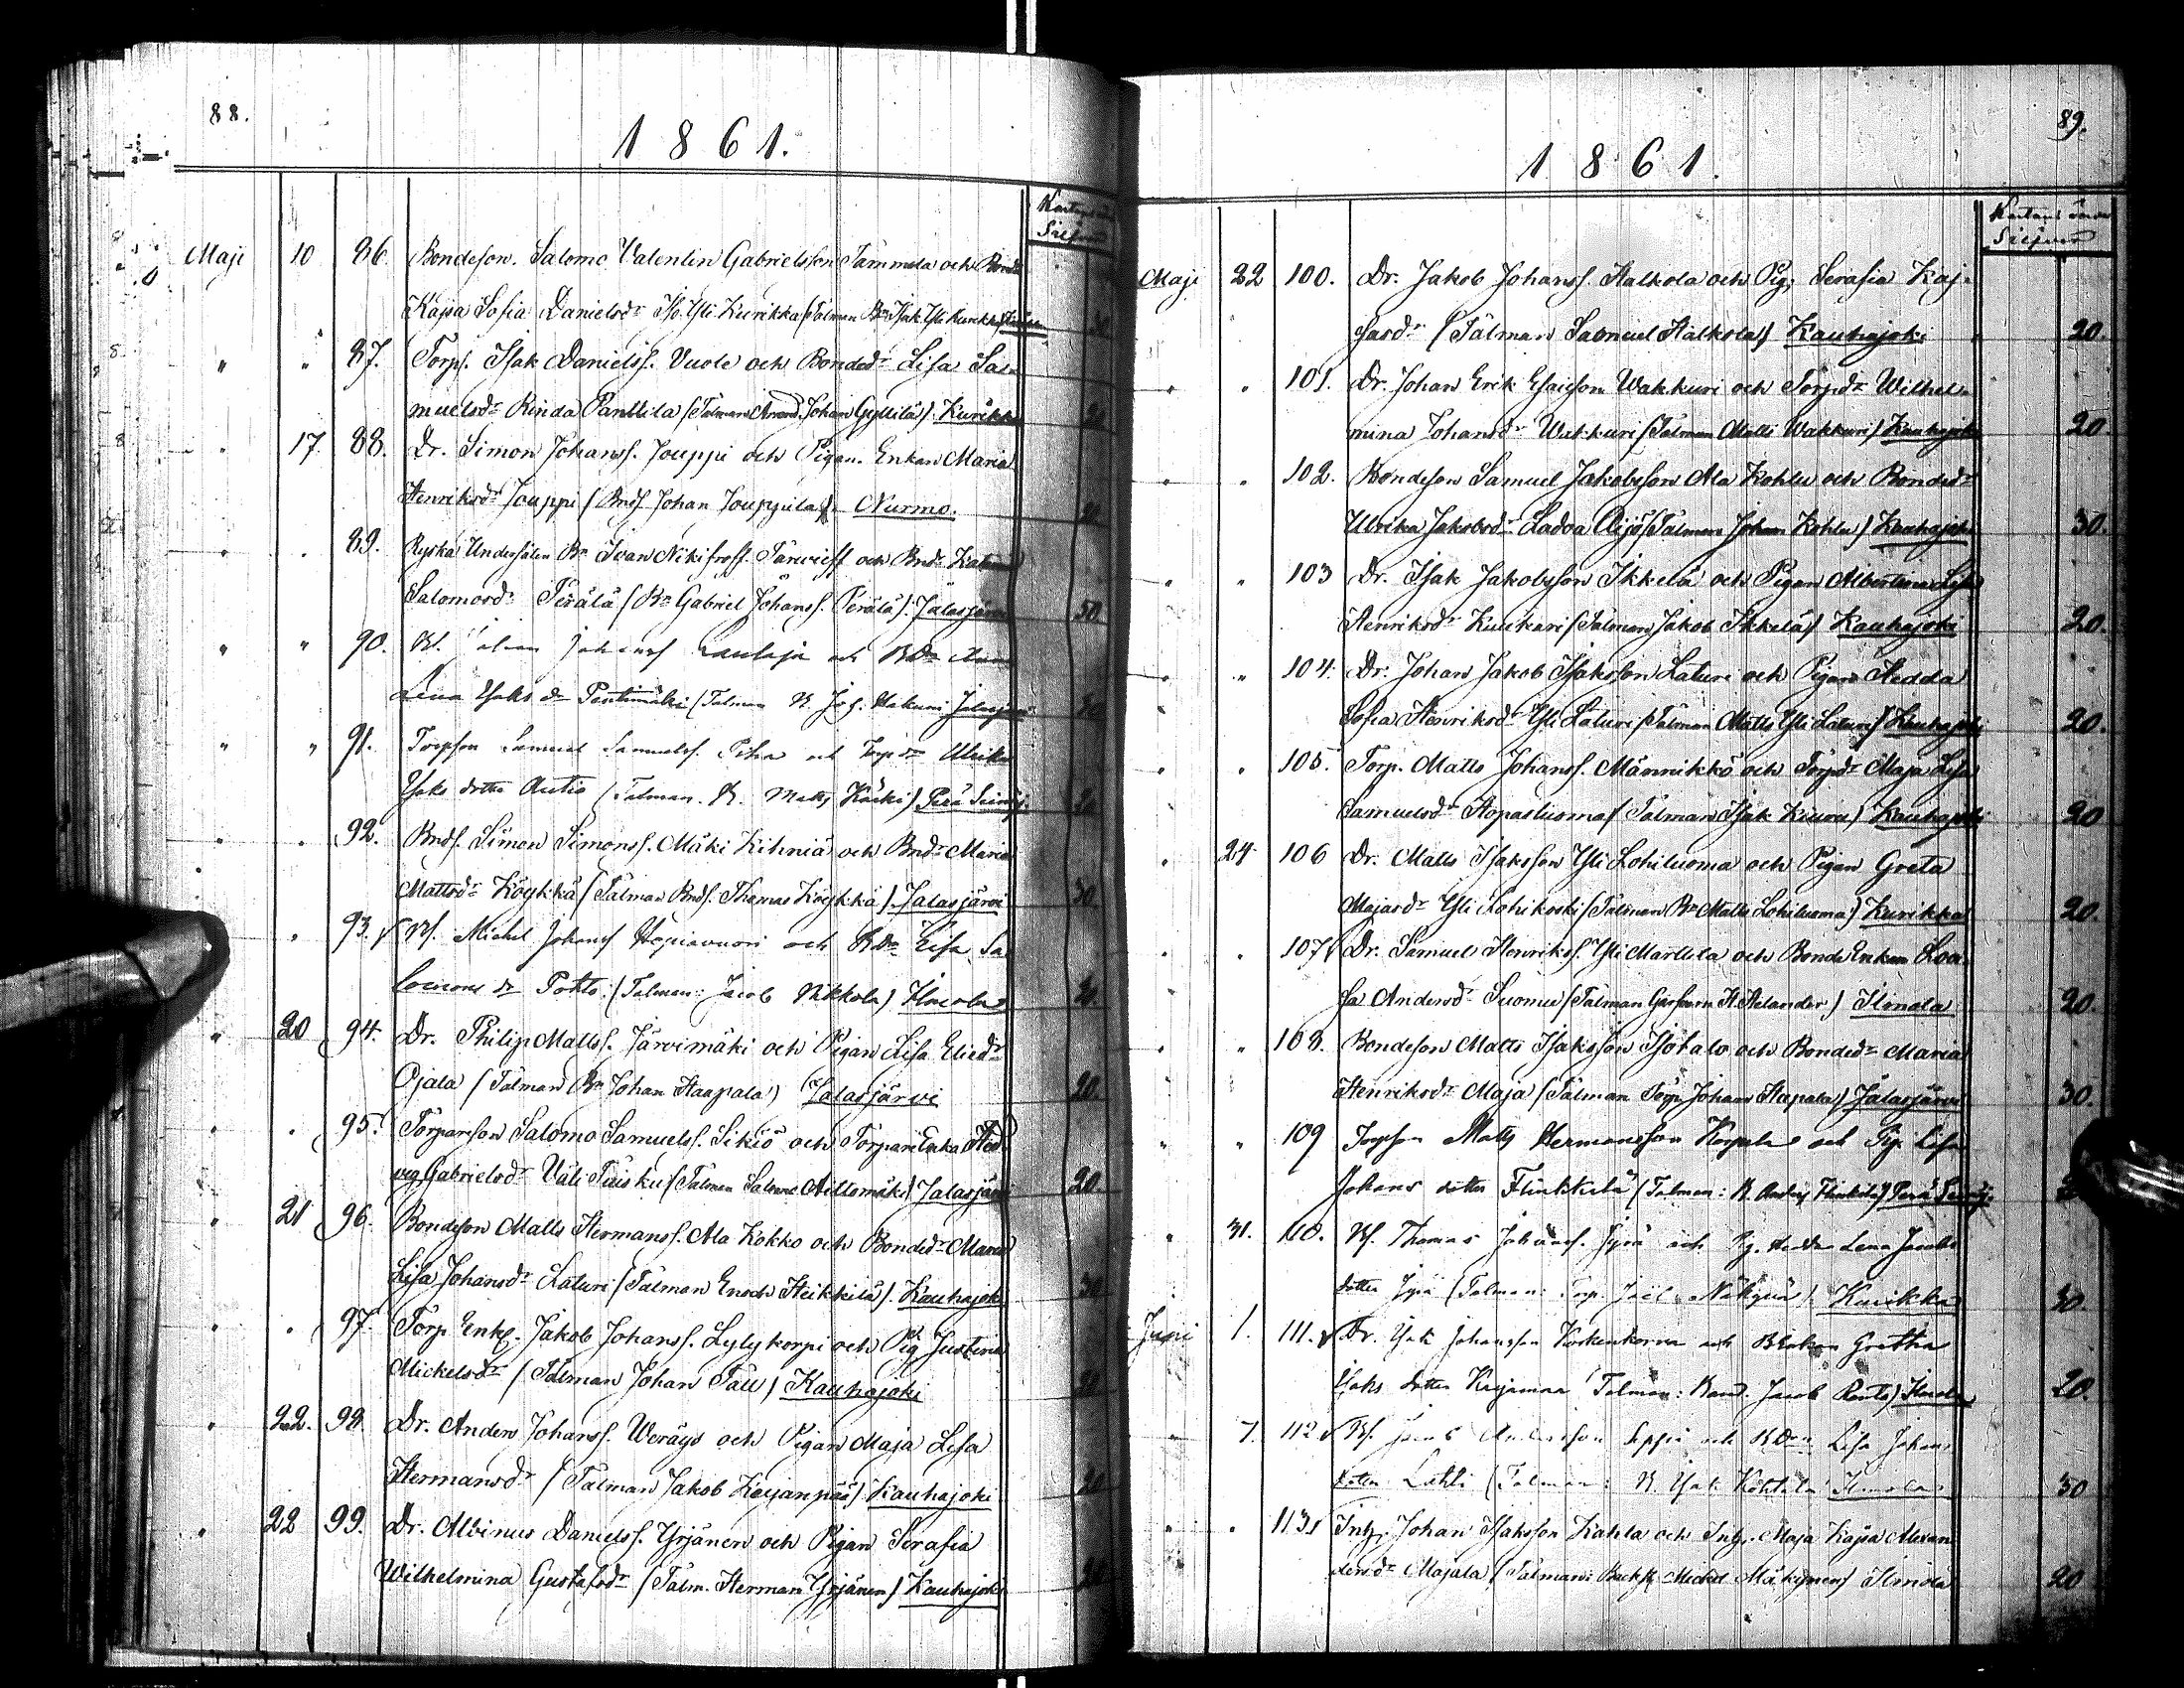 88.
1861.
Silfver
Maji 10 86. Bondeson. Salomo Valentin Gabrielsson Tammela och Bonded:r
Kajsa Sofia Danielsd:r Yli Kurikka (Talman B:n Isak Yli Kurikka)
" " 87. Torps. Isak Danielss. Vuole och Bonded:r Lisa Sa-
muelsd:r Rinda Panttila (Talman Johan Gyllilä). Kurikka 20
" 17. 88. Dr. Simon Johanss. Jouppi och Pigan. Enkan Maria
Henriksd:r Jouppi (Bnds. Johan Jouppila). Nurmo. 20
" . 89. Ryska Undersåten B:n Ivan Nikifroff. Tarvieff och Bnd:r
Salomosd:r Perälä (B:n Gabriel Johanss. Perälä). Jalasjärvi 50
" " 90. Johanss Lauluja och BD:r
Lena Isaks d:r Pentinmäki (Talman B. Joh. Hakuni Jalasjärvi
" " 91. Torpson Samuel Samuelss. Piha och Torpd:r Ulrika
Isaks dotter Autio (Talman. B. Matts Käcki) Perä Seinäj.
" . 92. Bnds. Simon Simonss. Mäki Kihniä och Bnd:r Maria
Mattsd:r Köykkä (Talman Bnds. Thomas Köykkä). Jalasjärvi 30.
. 93. Bs. Michel Johanss Hopiavuori och BD:r Lisa Sa-
lomons d:r Pohto. (Talman: Jacob Nikkola) Ilmola 30.
" 20 94. Dr. Philip Matts. Järvimäki och Pigan Lisa Elied:r
Ojala (Talman B:n Johan Haapala) Jalasjärvi 20.
" . 95. Torparson Salomo Samuelss. Sikiö och Torpare Enka Hed-
vig Gabrielsd:r Väli Täisku (Talman Salomo Aittomäki) Jalasjärvi 20
. 21 96. Bondeson Matts Hermanss. Ala Kokko och Bonded:r Maria
Lisa Johansd:r Laturi (Talman Enoch Heikkilä). Kauhajoki 30
" . 97. Torp Enkl. Jakob Johanss. Lylykorpi och Pig Justina
Mickelsd:r (Talman Johan Tall) Kauhajoki 20
" 22. 98. Dr. Anders Johanss. Weräys och Pigan Maja Lisa
Hermansd:r (Talman Jakob Kojanpää) Kauhajoki 20
" 22 99. Dr. Albinus Danielss. Yrjänen och Pigan Serafia
Wilhelmina Gustafsd:r (Talm. Herman Yrjänen) Kauhajoki 20
89.
1861.
Silfver
Maji 22 100. Dr. Jakob Johanss. Aalkola och Pig. Serafia Kaj-
sasd:r (Talman Samuel Aalkola) Kauhajoki 20.
" " 101. Dr. Johan Erik Esaisson Wakkuri och Torpd:r Wilhel-
mina Johansd:r Wakkuri (Talman Matts Wakkuri) Kauhajoki 20.
" " 102. Bondeson Samuel Jakobsson Ala Kohlu och Bonded:r
Ulrika Jakobsd:r Ladva Äijö (Talman Johan Kohlu) Kauhajoki 30.
" " 103 Dr. Isak Jakobsson Ikkelä och Pigan Albertina Lisa
Henriksd:r Kuukari (Talman Jakob Ikkelä) Kauhajoki 20.
" " 104. Dr. Johan Jakob Isaksson Laturi och Pigan Hedda
Sofia Henriksd:r Yli Laturi (Talman Matts Yli Laturi) Kauhajoki 20.
" " 105. Torp. Matts Johanss. Männikkö och Torpd:r Maja Lisa
Samuelsd:r Hopasluoma (Talman Isak Kiuru) Kauhajoki 20
" 24 106 Dr. Matts Isaksson Yli Lohiluoma och Pigan Greta
Majasd:r Yli Lohikoski (Talman B:n Matts Lohiluoma) Kurikka 20.
" " 107. Dr. Samuel Henrikss. Yli Marttila och Bonde Enkan Lovi-
sa Andersd:r Suomu (Talman H. Aelander) Ilmola 20.
" " 108. Bondeson Matts Isaksson Isotalo och Bonded:r Maria
Henriksd:r Maja (Talman Torp. Johan Haapala) Jalasjärvi 30.
" " 109 Torpson Matts Hermansson Korpela och Pig. Lisa
Johans dotter Flinkkilä (Talman: B. Flinkkilä) Perä Seinäj.
" 31. 110. Bs. Thomas Johanss. Jyrä och Pig. Hedda Lena Jacobs
dotter Jyrä (Talman: Torp. Joel Näkyvä) Kurikka 30.
Juni 1. 111. Dr. Isak Johansson Korkenkorva och BEnkan Gretha
Isaks dotter Kujamaa (Talman: Jacob Ranto) Ilmola 20.
" 7. 112 Bs. Jacob Andersson Seppä och BD:n Lisa Johans
dotter Lahti (Talman: B. Isak Köhtälä Ilmola 30
" " 113. Inh. Johan Isaksson Kahla och Inh. Maja Kajsa Alexan-
dersd:r Majala (Talman: Mickel Mäkynen) Ilmola 20